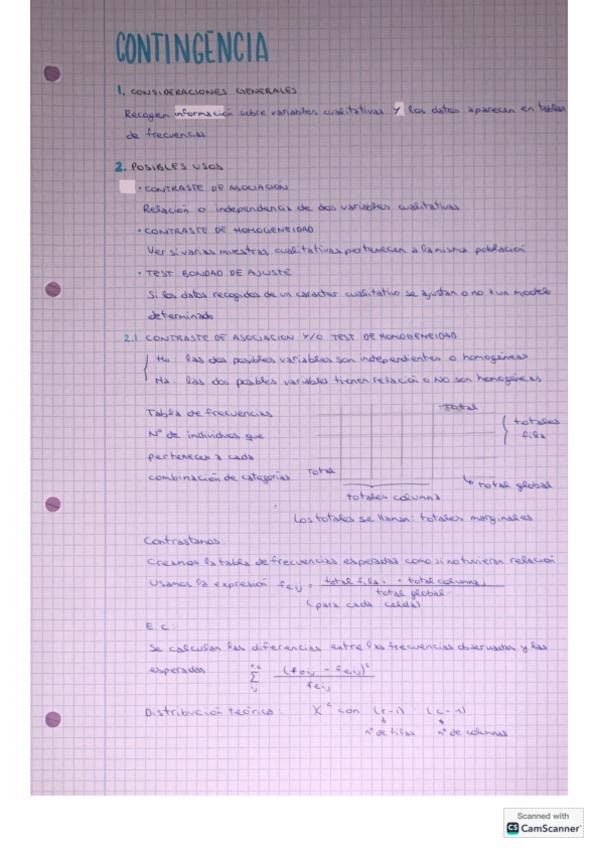 CONTINGENCIA
1. CONSIDERACIONES GENERALES
Recogen información sobre variables cualitativas y los datos aparecen en tablas
de frecuencias
2. POSIBLES USOS
• CONTRASTE DE ASOCIACIÓN
Relación o independencia de dos variables cualitativas
• CONTRASTE DE HOMOGENEIDAD
Ver si varias muestras cualitativas pertenecen a la misma población
• TEST BONDAD DE AJUSTE
Si los datos recogidos de un caracter cualitativo se ajustan o no a un modelo
determinado
2.1 CONTRASTE DE ASOCIACION Y/O TEST DE HOMOGENEIDAD
Ho: las dos posibles variables son independientes o homogéneas
Ha: las dos posibles variables tienen relación o NO son homogéneas
Tabla de frecuencias
Total
Nº de individuos que
totales
fila
pertenecen a cada
combinación de categorías
Total
total global
totales columna
Los totales se llaman: totales marginales
Contrastamos:
Creamos la tabla de frecuencias esperadas como si no tuvieran relación
Usamos la expresión feij = total fila i · total columna j / total global
(para cada celda)
E.C.
Se calculan las diferencias entre las frecuencias observadas y las
esperadas Σ (foij - feij)² / feij
Distribución teórica: X² con (r-1) · (c-1)
nº de filas nº de columnas
Scanned with
CS CamScanner